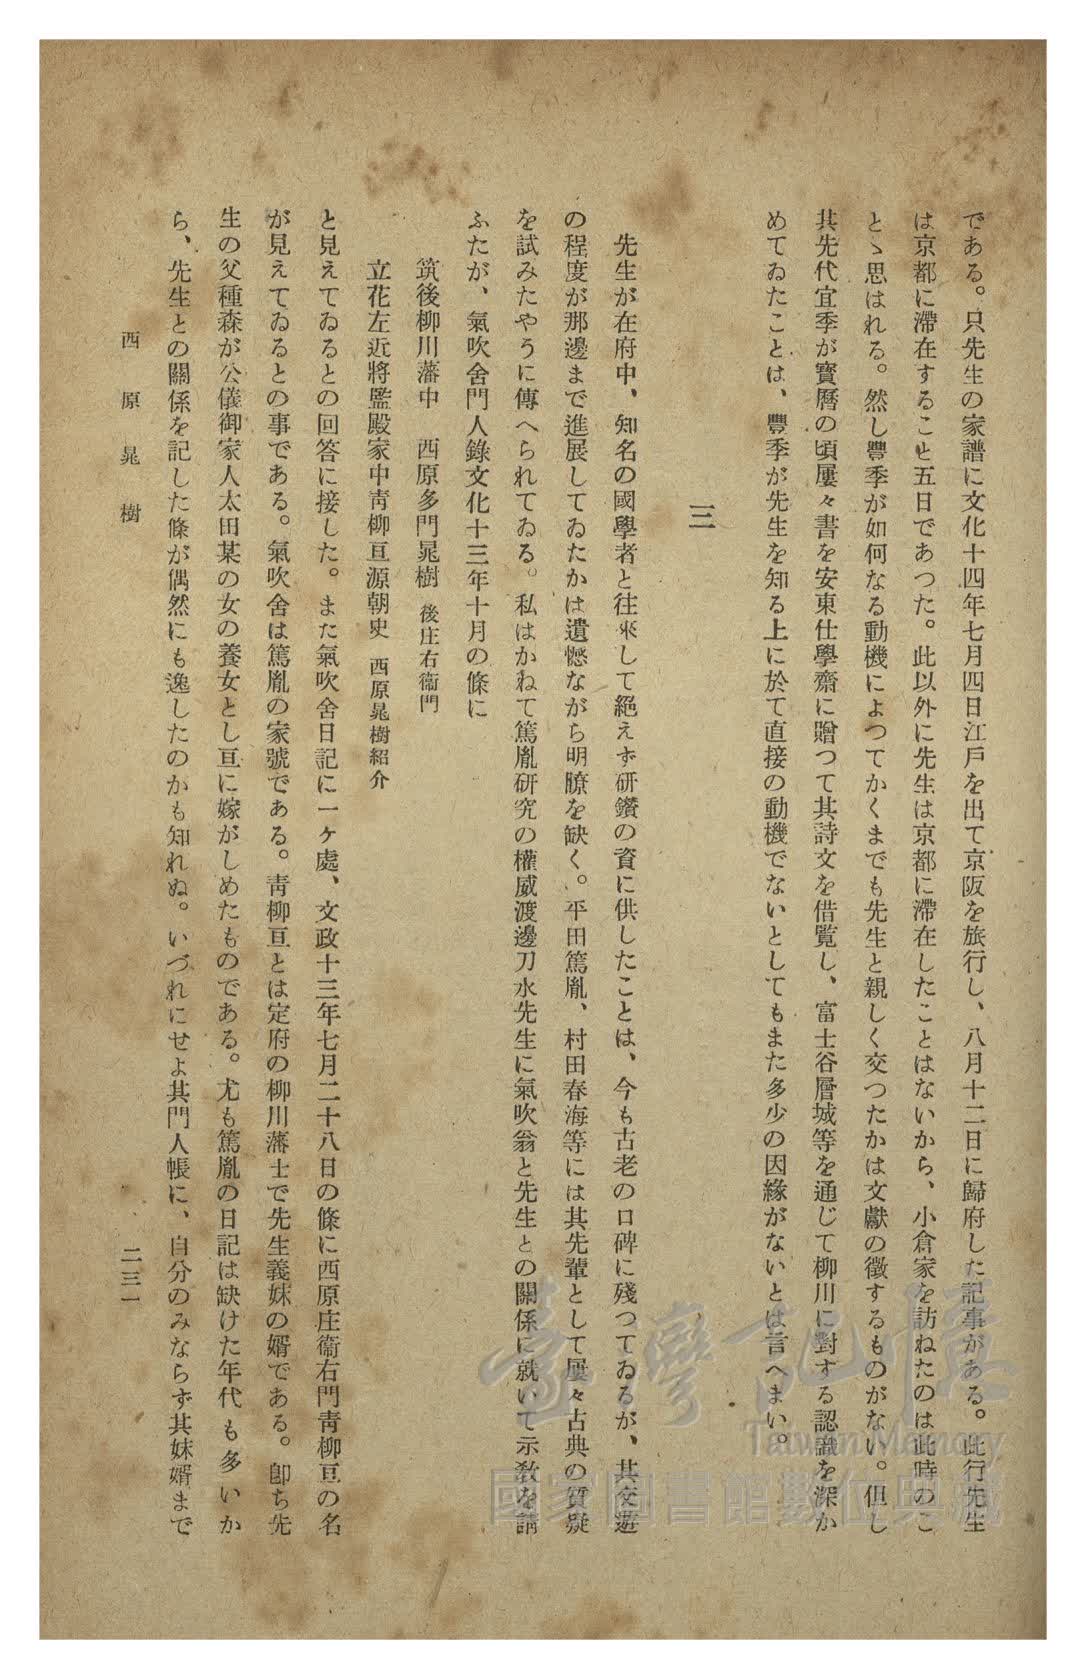 である。只先生の家譜に文化十四年七月四日江戸を出て京阪を旅行し、八月十二日に歸府した記事がある。此行先生
は京都に滯在すること五日であつた。此以外に先生は京都に滯在したことはないから、小倉家を訪ねたのは此時のこ
とゝ思はれる。然し豐季が如何なる動機によつてかくまでも先生と親しく交つたかは文獻の徵するものがない。但し
其先代宜季が寳曆の頃屢々書を安東仕學齋に贈つて其詩文を借覧し、富士谷層城等を通じて柳川に對する認識を深か
めてゐたことは、豐季が先生を知る上に於て直接の動機でないとしてもまた多少の因緣がないとは言へまい。
三
先生が在府中、知名の國學者と往來して絕えず硏鑽の資に供したことは、今も古老の口碑に殘つてゐるが、其交遊
の程度が那邊まで進展してゐたかは遺憾ながら明瞭を缺く。平田篤胤、村田春海等には其先輩として屢々古典の質疑
を試みたやうに傳へられてゐる。私はかねて篤胤硏究の權威渡邊刀水先生に氣吹翁と先生との關係に就いて示敎を請
ふたが、氣吹舍門人錄文化十三年十月の條に
筑後柳川藩中　西原多門晁樹　後庄右衞門
立花左近將監殿家中靑柳亘源朝史　西原晁樹紹介
と見えてゐるとの回答に接した。また氣吹舍日記に一ヶ處、文政十三年七月二十八日の條に西原庄衞右門靑柳亘の名
が見えてゐるとの事である。氣吹舍は篤胤の家號である。靑柳亘とは定府の柳川藩士で先生義妹の婿である。卽ち先
生の父種森が公儀御家人太田某の女の養女とし亘に嫁がしめたものである。尤も篤胤の日記は缺けた年代も多いか
ら、先生との關係を記した條が偶然にも逸したのかも知れぬ。いづれにせよ其門人帳に、自分のみならず其妹婿まで
西原晁樹
二三一
臺灣記憶
Taiwan Memory
國家圖書館數位典藏